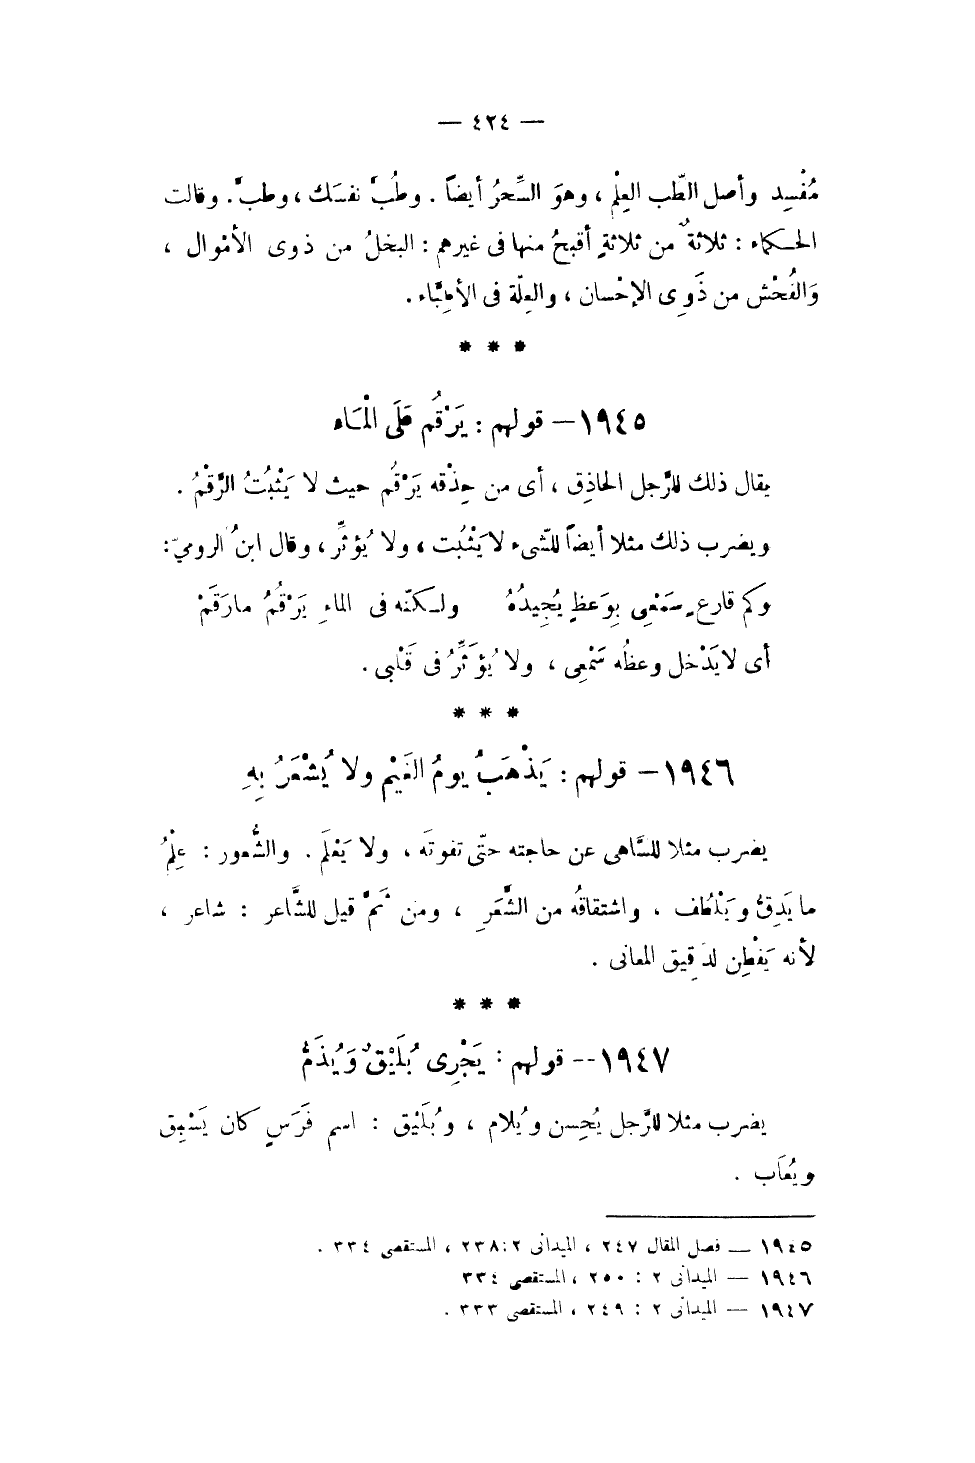 — ٤٢٤ —
مُفْسِد وأصل الطّب العِلْم ، وهوَ السِّحرُ أيضاً . وطُبَّ نفسَك ، وطبَّ . وقالت
الحكماء : ثلاثةٌ من ثلاثةٍ أقبحُ منها فى غيرهم : البخلُ من ذوى الأموال ،
وَالفُحْش من ذَوِى الإحْسان ، والعِلّة فى الأطِبَّاء .
* * *
١٩٤٥ – قولهم : يَرْقُم عَلَى الْمَاء
يقال ذلك للرَّجل الحاذِق ، أى من حِذْقه يَرْقُم حيث لا يَثْبُتُ الرَّقْمُ .
ويضرب ذلك مثلا أيضاً للشّىء لا يَثْبُت ، ولا يُؤثِّر ، وقال ابنُ الرومىّ :
وكم قارعٍ سَمْعِى بِوَعظٍ يُجِيدُهُ ولكنّه فى الماءِ يَرْقُمُ مارَقَمْ
أى لا يَدْخل وعظُه سَمْعِى ، ولا يُؤَثِّرُ فى قَلْبى .
* * *
١٩٤٦ – قولهم : يَذْهَبُ يومُ الغَيْمِ ولا يُشْعَرُ بِهِ
يضرب مثلا للسَّاهى عن حاجته حتّى تفوتَه ، ولا يَعْلَم . والشُّعور : عِلْمُ
ما يَدِقُّ ويَلْطُف ، واشتقاقُه من الشَّعَرِ ، ومن ثَمَّ قيل للشَّاعر : شاعر ،
لأنه يَفْطِن لدَقِيق المعانى .
* * *
١٩٤٧ -- قولهم : يَجْرِى بُلَيْقٌ وَيُذَمُّ
يضرب مثلا للرَّجل يُحِسن ويُلام ، وبُلَيْق : اسم فَرَسٍ كان يَسْبِق
ويُعَاب .
١٩٤٥ — فصل المقال ٢٤٧ ، الميدانى ٢ : ٢٣٨ ، المستقصى ٣٣٤ .
١٩٤٦ — الميدانى ٢ : ٢٥٠ ، المستقصى ٣٣٤
١٩٤٧ — الميدانى ٢ : ٢٤٩ ، المستقصى ٣٣٣ .